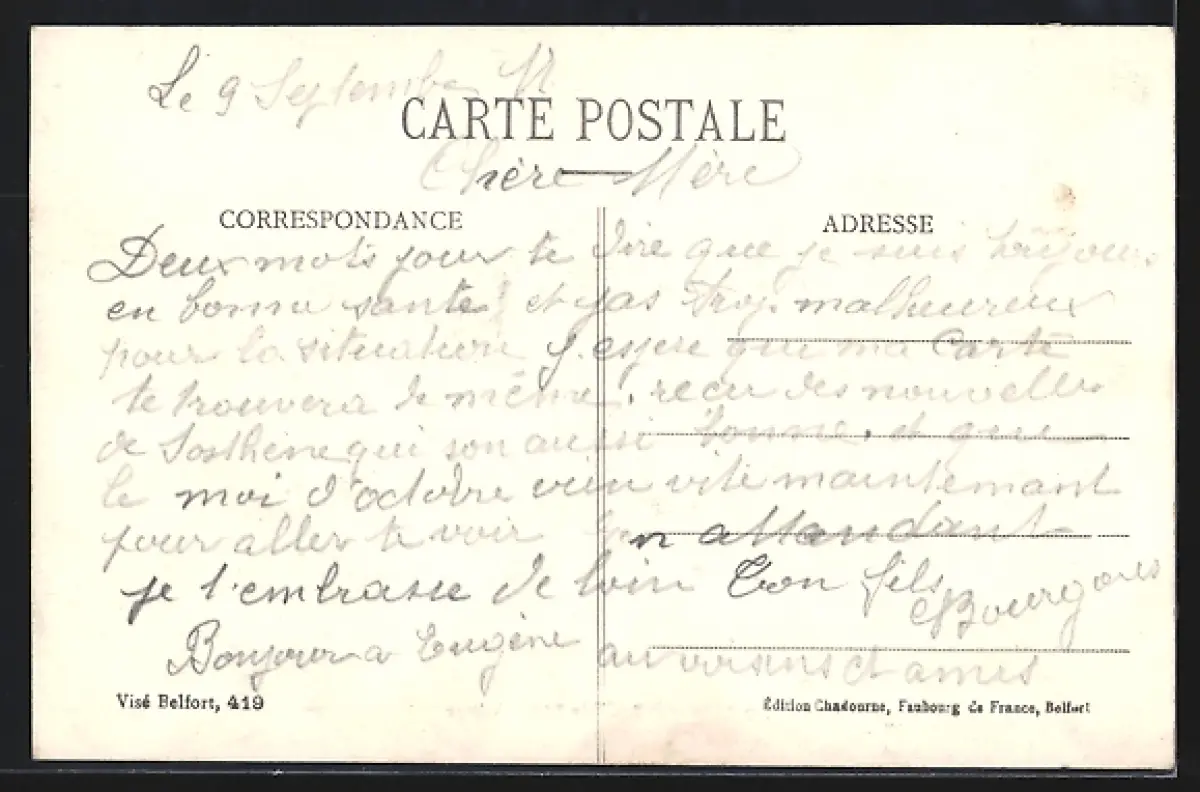 Le 9 Septembre 17
CARTE POSTALE
Chère Mère
CORRESPONDANCE
ADRESSE
Deux mots pour te dire que je suis toujours
en bonne santé et pas trop malheureux
pour la situation j'espere que ma Carte
te trouvera de même, recu des nouvelles
de Sosthène qui son aussi bonne, et que
le moi d'octobre vien vite maintemant
pour aller te voir En attandant
je t'embrasse de loin Ton fils
Bourgoues
Bonjour a Eugène au voisins et amis
Visé Belfort, 419
Édition Chadourne, Faubourg de France, Belfort